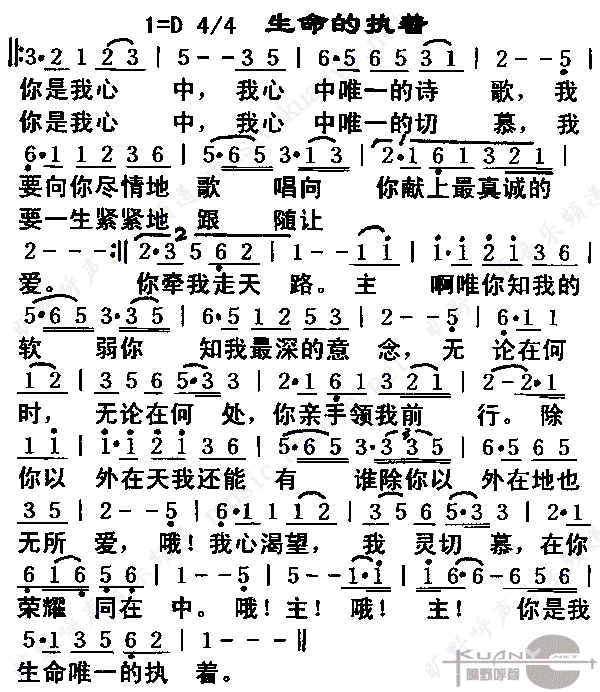 1=D 4/4 生命的执着
3·2 1 2 3 | 5 - - 3 5 | 6·5 6 5 3 1 | 2 - - 5 |
你是我心 中，我心 中唯一的诗 歌，我
你是我心 中，我心 中唯一的切 慕，我
6·1 1 2 3 6 | 5·6 5 3·1 3 | 2·1 6 1 3 2 1 |
要向你尽情地 歌 唱向 你献上最真诚的
要一生紧紧地 跟 随让
2 - - - :|| 2·3 5 6 2 | 1 - - 1 | 1·1 2 1 3 6 |
爱。 你牵我走天 路。主 啊唯你知我的
5·6 5 3·3 5 | 6·5 1 2 5 3 | 2 - - 5 | 6·1 1
软 弱你 知我最深的意 念，无 论在何
1 2 | 3 5 6 5·3 | 2·1 6 1 3 2 1 | 2 - 2·1
时， 无论在何 处，你亲手领我前 行。除
1 1 | 1·1 2 1 3 6 | 5·6 5 3·3 3 5 | 6·5 6 5
你以 外在天我还能 有 谁除你以 外在地也
3 5 | 2 - - 5 | 6·1 1 1 2 | 3 5 6 5 6 5 | 3·2 3
无所 爱，哦！我心渴望， 我 灵切慕，在你
6 1 6 5 6 | 1 - - 5 | 1 - - 5 | 5 - - 1·1 | 1 6 - 6·5 6 5 |
荣耀 同在 中。哦！主！哦！ 主！ 你是我
5·1 3 5 6 2 | 1 - - - |
生命唯一的执 着。
KUANYE.NET
旷野呼声